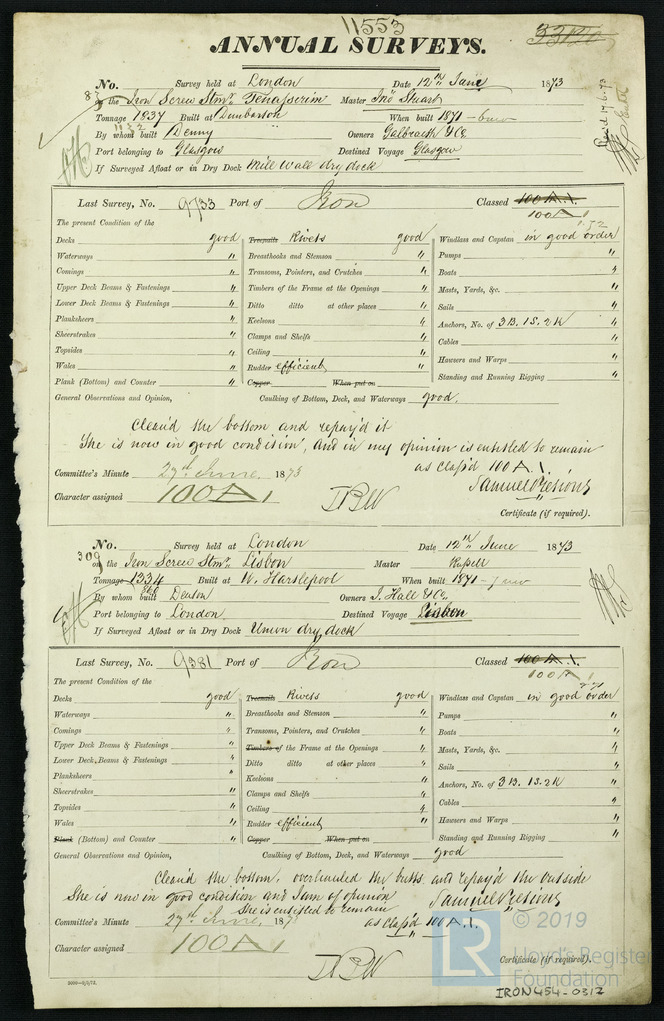 11553
ANNUAL SURVEYS.
No. Survey held at London Date 12th June 1873
87 on the Iron Screw Stmr Tenasserim Master Jno Stuart
Tonnage 1837 Built at Dumbarton When built 1871
By whom built Denny Owners Galbraith & Co
Port belonging to Glasgow Destined Voyage Glasgow
If Surveyed Afloat or in Dry Dock Mill Wall dry dock
Last Survey, No. 9733 Port of Iron Classed 100 A.1.
100 A 1
The present Condition of the
Decks good Treenails Rivets good Windlass and Capstan in good order
Waterways " Breasthooks and Stemson " Pumps "
Comings " Transoms, Pointers, and Crutches " Boats "
Upper Deck Beams & Fastenings " Timbers of the Frame at the Openings " Masts, Yards, &c. "
Lower Deck Beams & Fastenings " Ditto ditto at other places " Sails "
Planksheers " Keelsons " Anchors, No. of 3B. 1S. 2K "
Sheerstrakes " Clamps and Shelfs " Cables "
Topsides " Ceiling " Hawsers and Warps "
Wales " Rudder efficient Standing and Running Rigging "
Plank (Bottom) and Counter " Copper When put on
General Observations and Opinion, Caulking of Bottom, Deck, and Waterways good.
Clean'd the bottom and repay'd it
She is now in good condition, and in my opinion is entitled to remain
as class'd 100 A.1.
Committee's Minute 27th June, 1873
Character assigned 100 A 1
Certificate (if required).
No. Survey held at London Date 12th June 1873
309 on the Iron Screw Stmr Lisbon Master Russell
Tonnage 1334 Built at W. Hartlepool When built 1871
By whom built Denton Owners J. Hall & Co.
Port belonging to London Destined Voyage Lisbon
If Surveyed Afloat or in Dry Dock Union dry dock
Last Survey, No. 9381 Port of Iron Classed 100 A.1.
100 A 1
The present Condition of the
Decks good Treenails Rivets good Windlass and Capstan in good order
Waterways " Breasthooks and Stemson " Pumps "
Comings " Transoms, Pointers, and Crutches " Boats "
Upper Deck Beams & Fastenings " Timbers of the Frame at the Openings " Masts, Yards, &c. "
Lower Deck Beams & Fastenings " Ditto ditto at other places " Sails "
Planksheers " Keelsons " Anchors, No. of 3B. 1S. 2K "
Sheerstrakes " Clamps and Shelfs " Cables "
Topsides " Ceiling " Hawsers and Warps "
Wales " Rudder efficient Standing and Running Rigging "
Plank (Bottom) and Counter " Copper When put on
General Observations and Opinion, Caulking of Bottom, Deck, and Waterways good
Clean'd the bottom, overhauled the butts, and repay'd the outside
She is now in good condition and I am of opinion
she is entitled to remain
Committee's Minute 27th June, 187 as class'd 100 A.1.
Character assigned 100 A 1
Certificate (if required).
LR © 2019
Lloyd's Register
Foundation
IRON454-0312